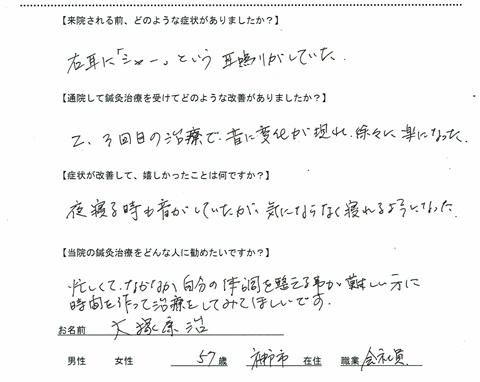 【来院される前、どのような症状がありましたか？】
右耳に「シャー」という耳鳴りがしていた.
【通院して鍼灸治療を受けてどのような改善がありましたか？】
2、3回目の治療で、音に変化が現れ、徐々に楽になった.
【症状が改善して、嬉しかったことは何ですか？】
夜寝る時も音がしていたが、気にならなく寝れるようになった.
【当院の鍼灸治療をどんな人に勧めたいですか？】
忙しくて、なかなか自分の体調を整える事が難しい方に
時間を作って治療をしてみてほしいです.
お名前 大塚 治
男性 女性 57歳 神戸市 在住 職業 会社員